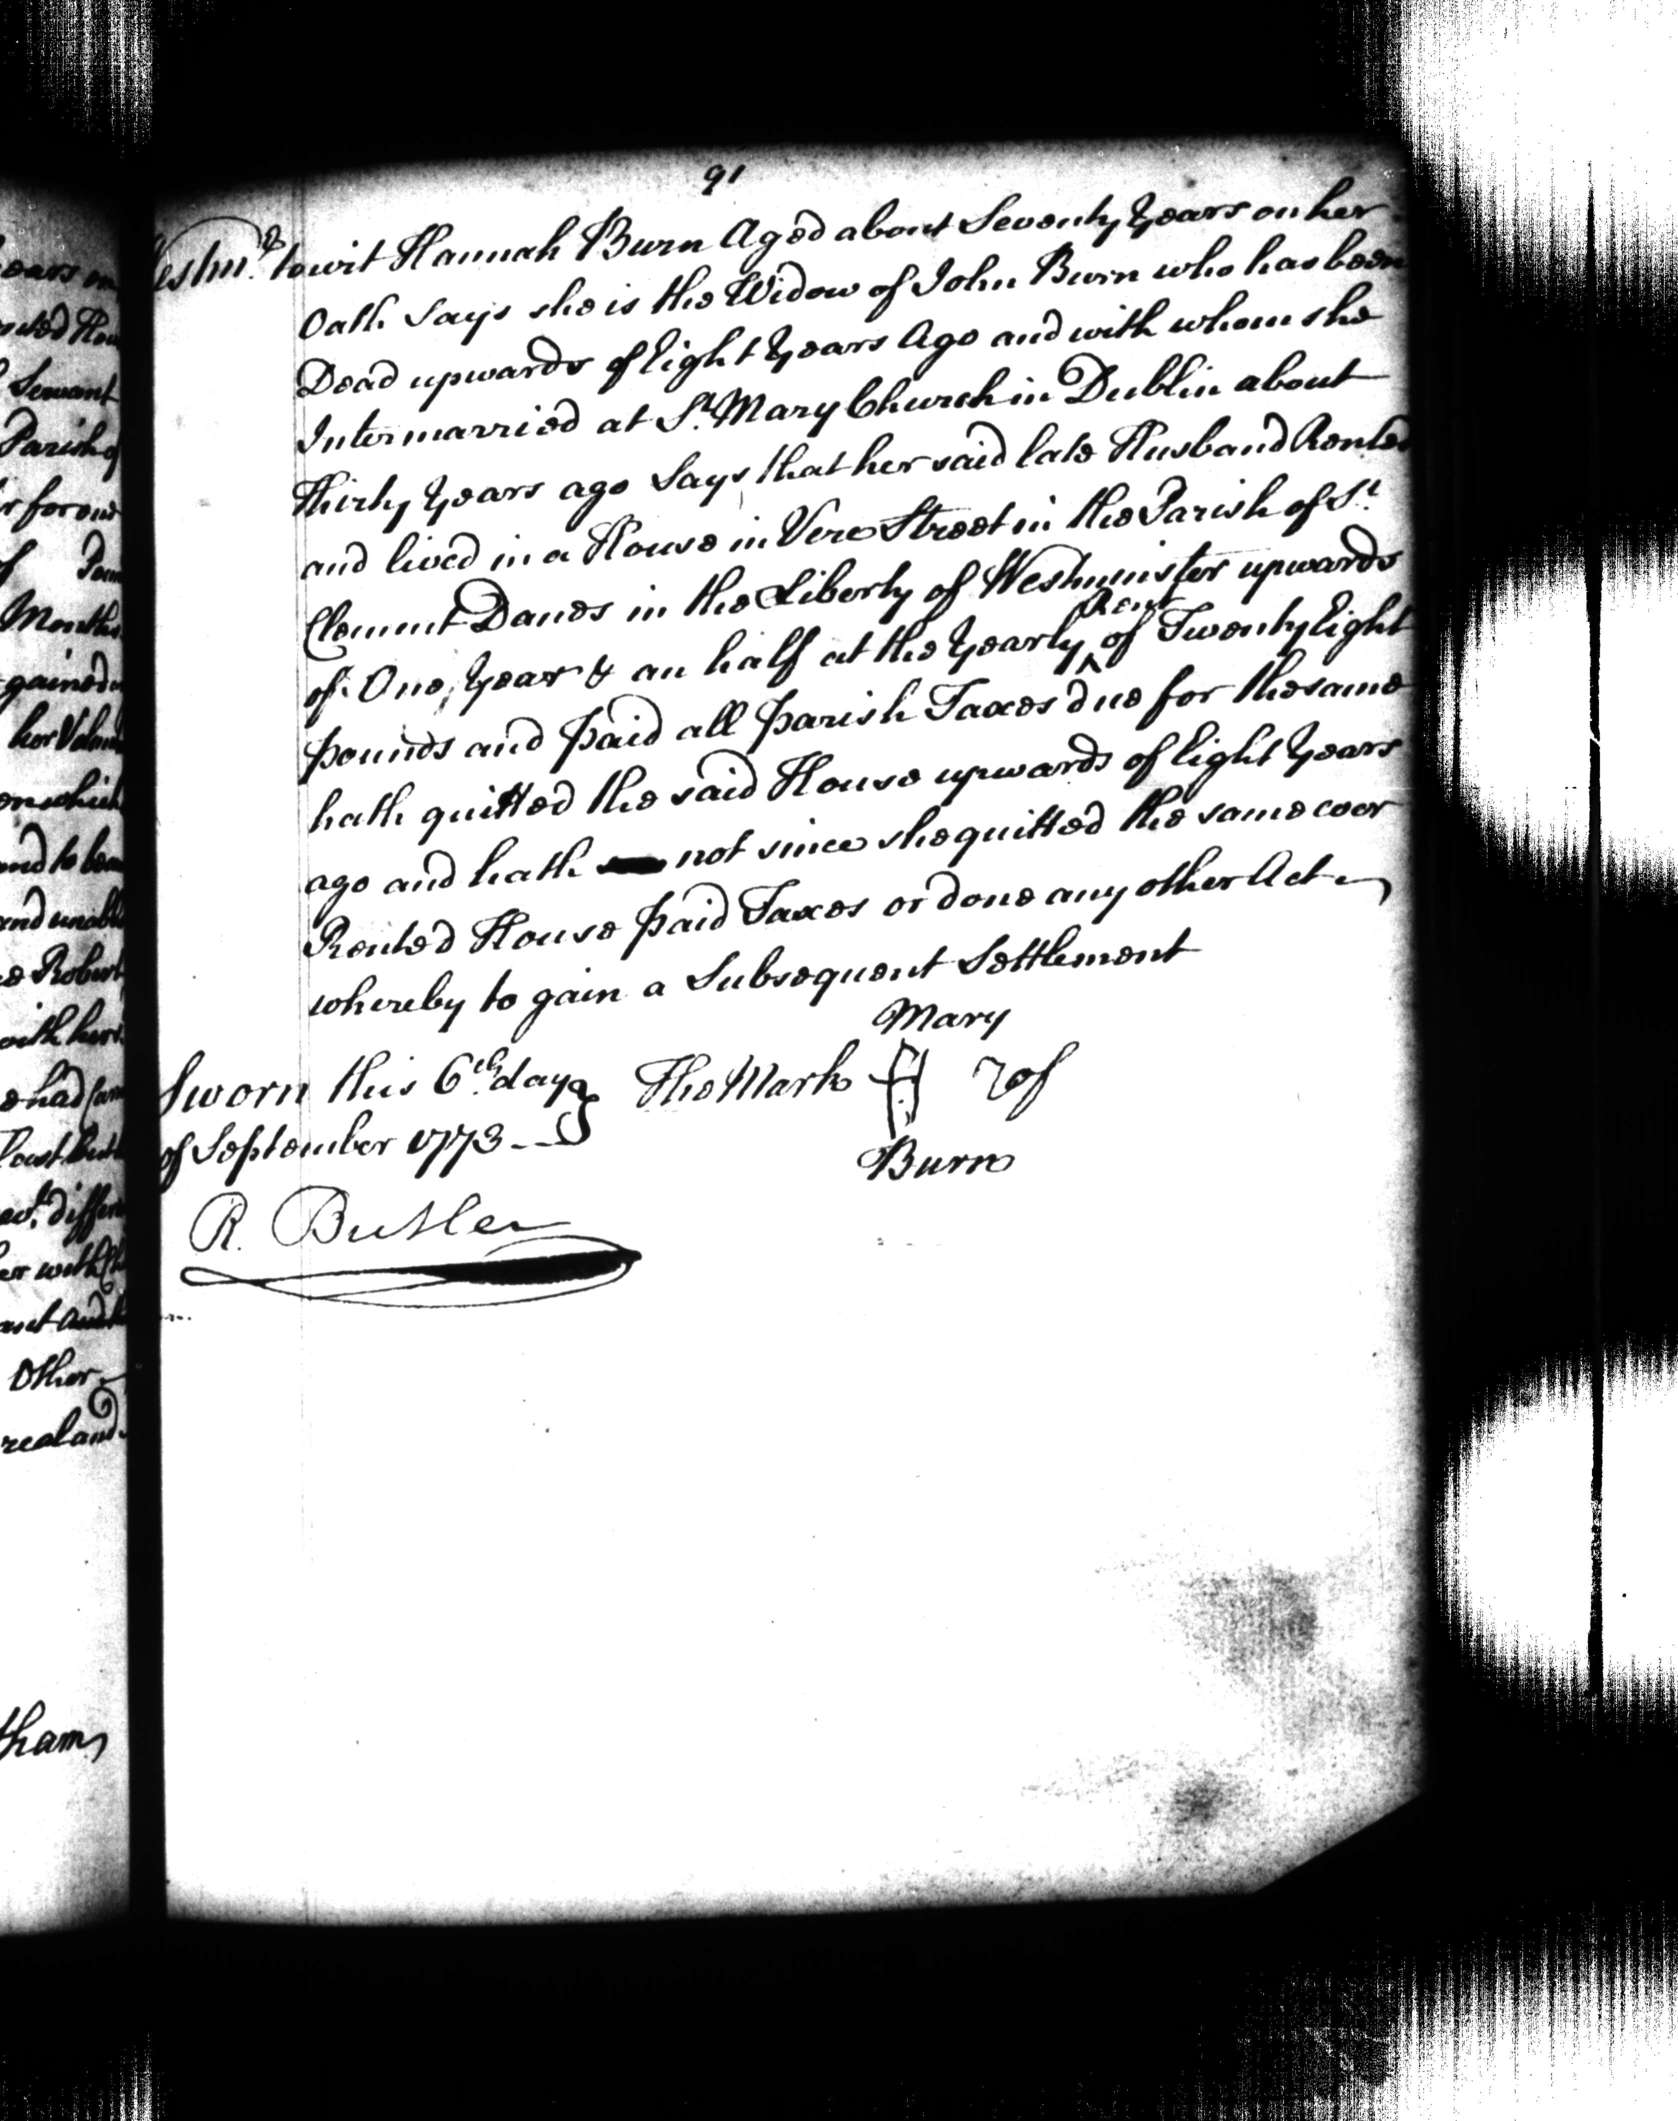 91
Westmr. to wit Hannah Burn Aged about Seventy Years on her
Oath Says she is the Widow of John Burn who has been
Dead upwards of Eight Years Ago and with whom she
Intermarried at St. Mary Church in Dublin about
Thirty Years ago Says that her said late Husband Rented
and lived in a House in Vere Street in the Parish of St.
Clement Danes in the Liberty of Westminster upwards
of One Year & an half at the Yearly Rent of Twenty Eight
pounds and paid all parish Taxes due for the same
hath quitted the said House upwards of Eight Years
ago and hath not since she quitted the same
Rented House paid Taxes or done any other Act
whereby to gain a Subsequent Settlement
Sworn this 6th. day
of September 1773
The Mark of
Mary
Burn
R. Butler
Servant
Parish of
for one
Months
gained
her
which
and to
and unable
Robert
with her
had
differ
with
Other